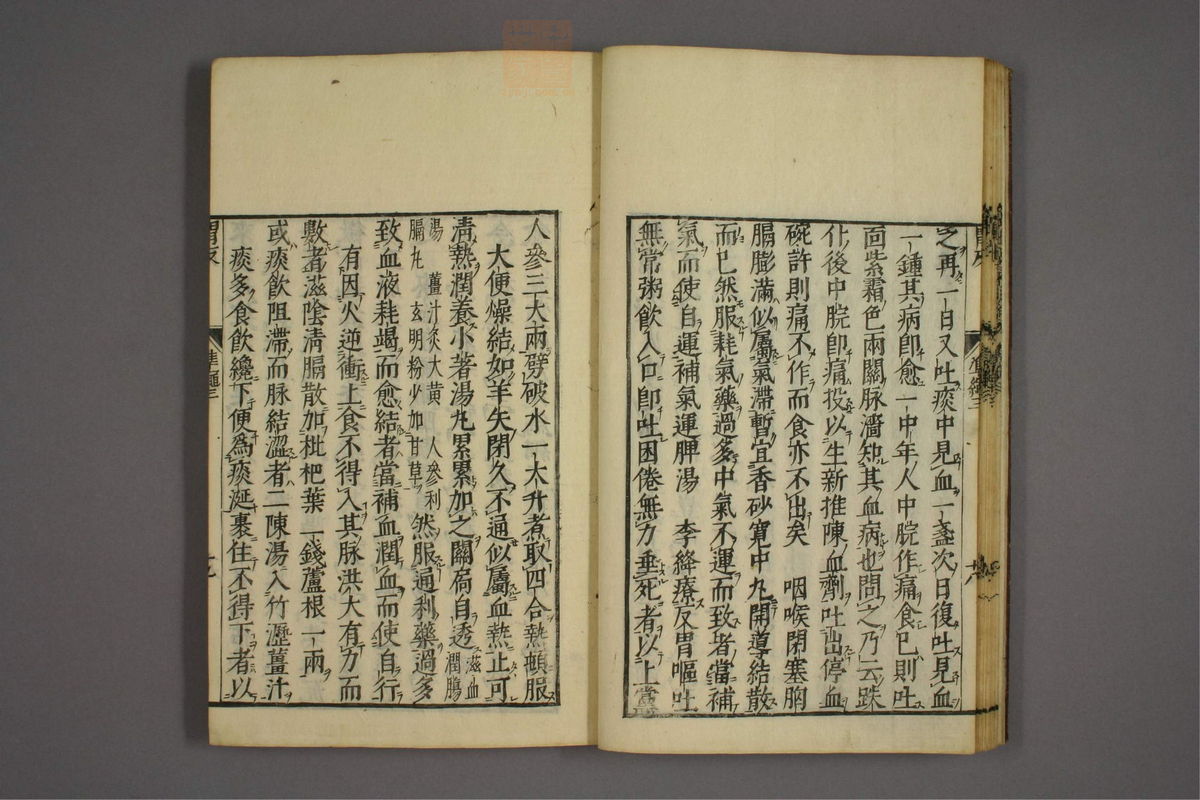 之再一日又吐痰中見血一盞次日復吐見血
一鍾其病卽愈一中年人中脘作痛食巳則吐
面紫霜色兩關脉濇知其血病也問之乃云跌
仆後中脘卽痛投以生新推陳血劑吐出停血
碗許則痛不作而食亦不出矣　咽喉閉塞胸
膈膨滿似屬氣滯暫宜香砂寬中丸開導結散
而巳然服耗氣藥過多中氣不運而致者當補
氣而使自運補氣運脾湯　李絳療反胃嘔吐
無常粥飲入口卽吐困倦無力垂死者以上黨
人參三大兩劈破水一大升煮取四合熱頓服
大便燥結如羊矢閉久不通似屬血熱止可
清熱潤養小著湯丸累累加之關扃自透滋血潤腸
湯　薑汁灸大黄　人參利膈丸　玄明粉少加甘草　然服通利藥過多
致血液耗竭而愈結者當補血潤血而使自行
有因火逆衝上食不得入其脉洪大有力而
數者滋陰清膈散加枇杷葉一錢蘆根一兩
或痰飲阻滯而脉結澀者二陳湯入竹瀝薑汁
痰多食飲纔下便爲痰涎裹住不得下者以